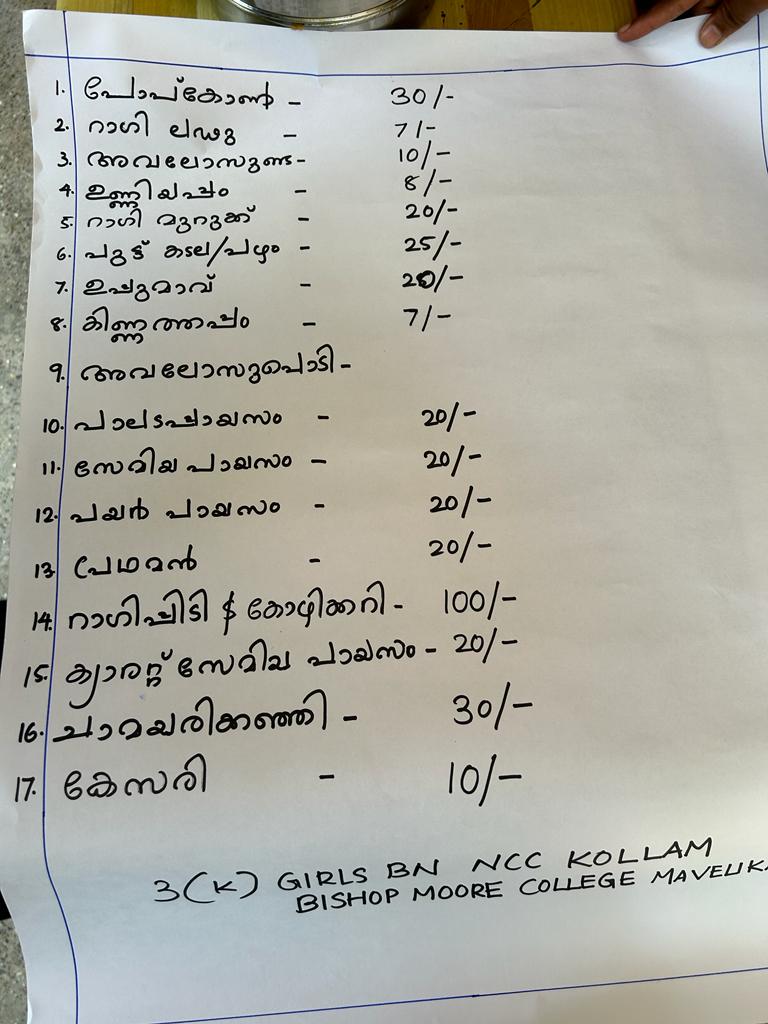 1. പോപ്കോൺ - 30/-
2. റാഗി ലഡു - 7/-
3. അവലോസുണ്ട - 10/-
4. ഉണ്ണിയപ്പം - 8/-
5. റാഗി മുറുക്ക് - 20/-
6. പുട്ട് കടല/പഴം - 25/-
7. ഉപ്പുമാവ് - 20/-
8. കിണ്ണത്തപ്പം - 7/-
9. അവലോസുപൊടി -
10. പാലടപ്പായസം - 20/-
11. സേമിയ പായസം - 20/-
12. പയർ പായസം - 20/-
13. പ്രഥമൻ - 20/-
14. റാഗിപ്പിടി & കോഴിക്കറി - 100/-
15. ക്യാരറ്റ് സേമിയ പായസം - 20/-
16. ചാമയരിക്കഞ്ഞി - 30/-
17. കേസരി - 10/-
3(K) GIRLS BN NCC KOLLAM
BISHOP MOORE COLLEGE MAVELIK